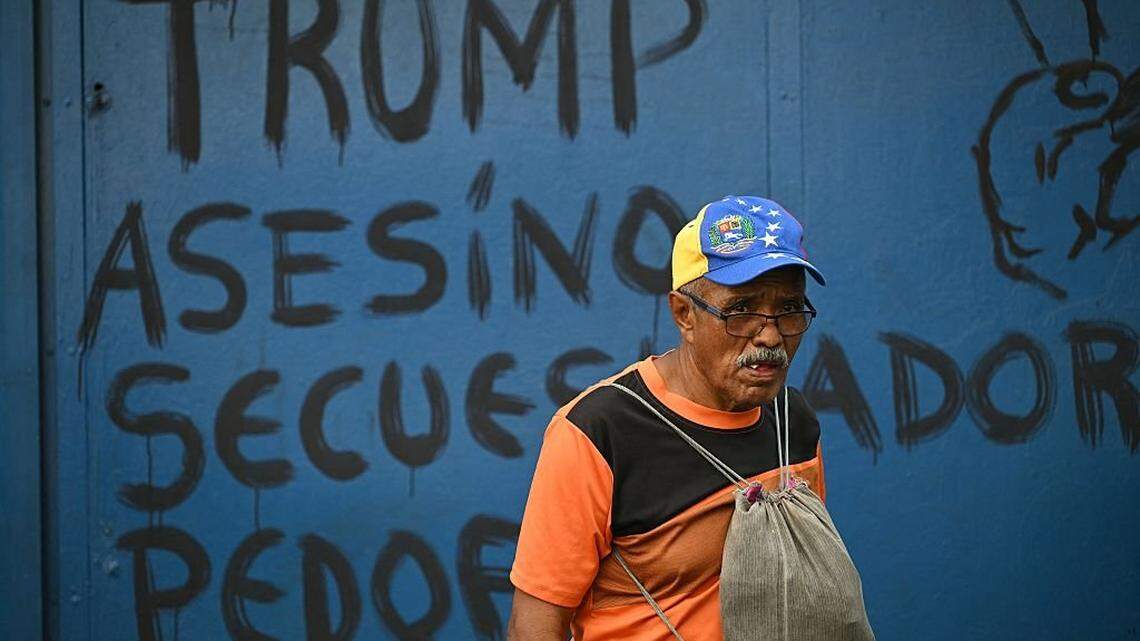 TRUMP
ASESÍNO
SECUES ADOR
PEDOF